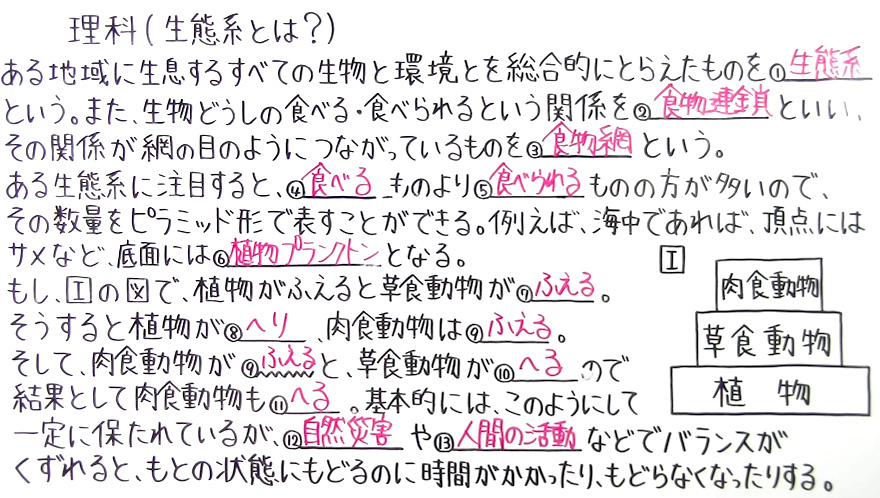 理科(生態系とは?)
ある地域に生息するすべての生物と環境とを総合的にとらえたものを①生態系
という。また、生物どうしの食べる・食べられるという関係を②食物連鎖といい、
その関係が網の目のようにつながっているものを③食物網という。
ある生態系に注目すると、④食べるものより⑤食べられるものの方が多いので、
その数量をピラミッド形で表すことができる。例えば、海中であれば、頂点には
サメなど、底面には⑥植物プランクトンとなる。
もし、Iの図で、植物がふえると草食動物が⑦ふえる。
そうすると植物が⑧へり、肉食動物は⑨ふえる。
そして、肉食動物が⑨ふえると、草食動物が⑩へるので
結果として肉食動物も⑪へる。基本的には、このようにして
一定に保たれているが、⑫自然災害や⑬人間の活動などでバランスが
くずれると、もとの状態にもどるのに時間がかかったり、もどらなくなったりする。
I
肉食動物
草食動物
植物